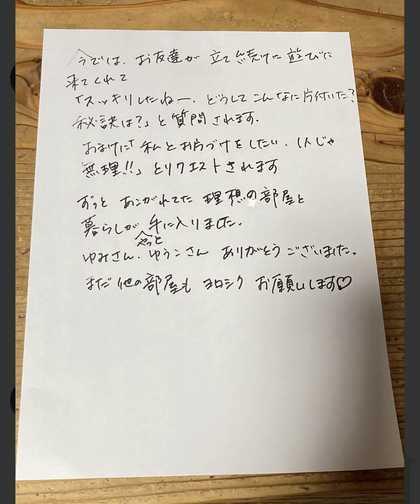 今では、お友達が 立てつづけに 遊びに
来てくれて
「スッキリしたねー、どうしてこんなに片付いた?
秘訣は?」と質問されます。
おまけに「私とお片づけをしたい、1人じゃ
無理!!」とリクエストされます
ずっと あこがれてた 理想の部屋と
暮らしが 手に入りました。
やっと
ゆみさん、ゆうこさん ありがとうございました。
まだ他の部屋も ヨロシク お願いします♡